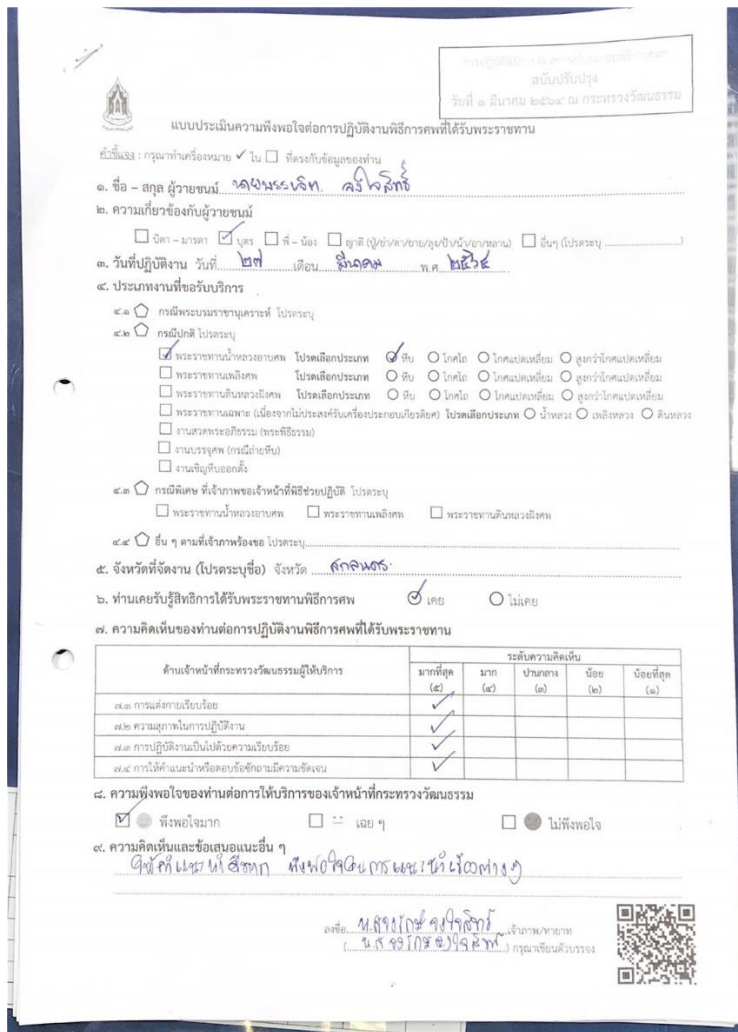 ฉบับปรับปรุง
วันที่ ๑ มีนาคม ๒๕๖๔ ณ กระทรวงวัฒนธรรม
แบบประเมินความพึงพอใจต่อการปฏิบัติงานพิธีการศพที่ได้รับพระราชทาน
คำชี้แจง : กรุณาทำเครื่องหมาย ✓ ใน ☐ ที่ตรงกับข้อมูลของท่าน
๑. ชื่อ – สกุล ผู้วายชนม์ นายพรรเจิท จงใจสิทธิ์
๒. ความเกี่ยวข้องกับผู้วายชนม์
☐ บิดา – มารดา ☑ บุตร ☐ พี่ – น้อง ☐ ญาติ (ปู่/ย่า/ตา/ยาย/ลุง/ป้า/น้า/อา/หลาน) ☐ อื่นๆ (โปรดระบุ ....................)
๓. วันที่ปฏิบัติงาน วันที่ ๒๗ เดือน มีนาคม พ.ศ. ๒๕๖๔
๔. ประเภทงานที่ขอรับบริการ
๔.๑ กรณีพระบรมราชานุเคราะห์ โปรดระบุ
๔.๒ กรณีปกติ โปรดระบุ
☑ พระราชทานน้ำหลวงอาบศพ โปรดเลือกประเภท ☑ หีบ ○ โกศโถ ○ โกศแปดเหลี่ยม ○ สูงกว่าโกศแปดเหลี่ยม
☐ พระราชทานเพลิงศพ โปรดเลือกประเภท ○ หีบ ○ โกศโถ ○ โกศแปดเหลี่ยม ○ สูงกว่าโกศแปดเหลี่ยม
☐ พระราชทานดินหลวงฝังศพ โปรดเลือกประเภท ○ หีบ ○ โกศโถ ○ โกศแปดเหลี่ยม ○ สูงกว่าโกศแปดเหลี่ยม
☐ พระราชทานเฉพาะ (เนื่องจากไม่ประสงค์รับเครื่องประกอบเกียรติยศ) โปรดเลือกประเภท ○ น้ำหลวง ○ เพลิงหลวง ○ ดินหลวง
☐ งานสวดพระอภิธรรม (พระพิธีธรรม)
☐ งานบรรจุศพ (กรณีถ่ายหีบ)
☐ งานเชิญหีบออกตั้ง
๔.๓ กรณีพิเศษ ที่เจ้าภาพขอเจ้าหน้าที่พิธีช่วยปฏิบัติ โปรดระบุ
☐ พระราชทานน้ำหลวงอาบศพ ☐ พระราชทานเพลิงศพ ☐ พระราชทานดินหลวงฝังศพ
๔.๔ อื่น ๆ ตามที่เจ้าภาพร้องขอ โปรดระบุ....................
๕. จังหวัดที่จัดงาน (โปรดระบุชื่อ) จังหวัด สกลนคร
๖. ท่านเคยรับรู้สิทธิการได้รับพระราชทานพิธีการศพ ☑ เคย ○ ไม่เคย
๗. ความคิดเห็นของท่านต่อการปฏิบัติงานพิธีการศพที่ได้รับพระราชทาน
ด้านเจ้าหน้าที่กระทรวงวัฒนธรรมผู้ให้บริการ ระดับความคิดเห็น
มากที่สุด (๕) มาก (๔) ปานกลาง (๓) น้อย (๒) น้อยที่สุด (๑)
๗.๑ การแต่งกายเรียบร้อย ✓
๗.๒ ความสุภาพในการปฏิบัติงาน ✓
๗.๓ การปฏิบัติงานเป็นไปด้วยความเรียบร้อย ✓
๗.๔ การให้คำแนะนำหรือตอบข้อซักถามมีความชัดเจน ✓
๘. ความพึงพอใจของท่านต่อการให้บริการของเจ้าหน้าที่กระทรวงวัฒนธรรม
☑ พึงพอใจมาก ☐ เฉย ๆ ☐ ไม่พึงพอใจ
๙. ความคิดเห็นและข้อเสนอแนะอื่น ๆ
ให้คำแนะนำดีมาก พึงพอใจในการแนะนำเรื่องต่างๆ
ลงชื่อ น.ส จงรักษ์ จงใจสิทธิ์ เจ้าภาพ/ทายาท
( น.ส จงรักษ์ จงใจสิทธิ์ ) กรุณาเขียนตัวบรรจง